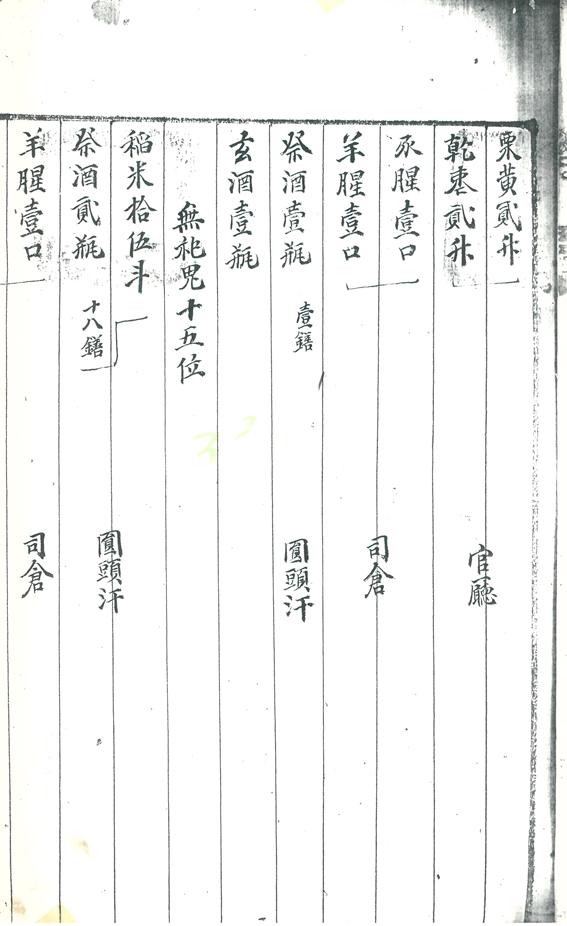 栗黃貳升
乾棗貳升 官廳
豕腥壹口 司倉
羊腥壹口
祭酒壹瓶 壹鐥 圓頭汗
玄酒壹瓶
無祀鬼十五位
稻米拾伍斗
祭酒貳瓶 十八鐥 圓頭汗
羊腥壹口 司倉